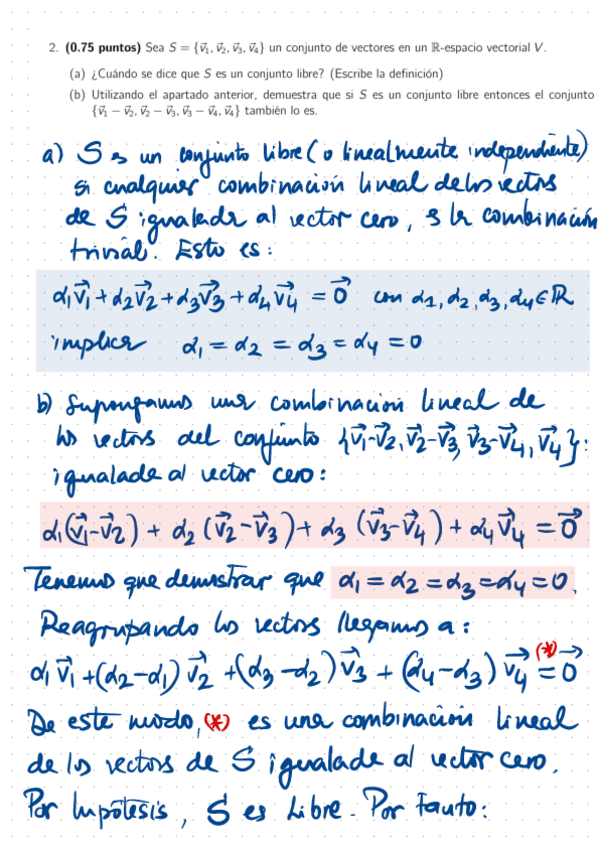 2. (0.75 puntos) Sea S = {v⃗₁, v⃗₂, v⃗₃, v⃗₄} un conjunto de vectores en un ℝ-espacio vectorial V.
(a) ¿Cuándo se dice que S es un conjunto libre? (Escribe la definición)
(b) Utilizando el apartado anterior, demuestra que si S es un conjunto libre entonces el conjunto
{v⃗₁ − v⃗₂, v⃗₂ − v⃗₃, v⃗₃ − v⃗₄, v⃗₄} también lo es.
a) S es un conjunto libre (o linealmente independiente)
si cualquier combinación lineal de los vectores
de S igualada al vector cero, es la combinación
trivial. Esto es:
α₁v⃗₁ + α₂v⃗₂ + α₃v⃗₃ + α₄v⃗₄ = 0⃗ con α₁, α₂, α₃, α₄ ∈ ℝ
implica α₁ = α₂ = α₃ = α₄ = 0
b) Supongamos una combinación lineal de
los vectores del conjunto {v⃗₁-v⃗₂, v⃗₂-v⃗₃, v⃗₃-v⃗₄, v⃗₄}:
igualada al vector cero:
α₁(v⃗₁-v⃗₂) + α₂(v⃗₂-v⃗₃) + α₃(v⃗₃-v⃗₄) + α₄v⃗₄ = 0⃗
Tenemos que demostrar que α₁ = α₂ = α₃ = α₄ = 0.
Reagrupando los vectores llegamos a:
α₁v⃗₁ + (α₂-α₁)v⃗₂ + (α₃-α₂)v⃗₃ + (α₄-α₃)v⃗₄ (*) = 0⃗
De este modo, (*) es una combinación lineal
de los vectores de S igualada al vector cero.
Por hipótesis, S es libre. Por tanto: